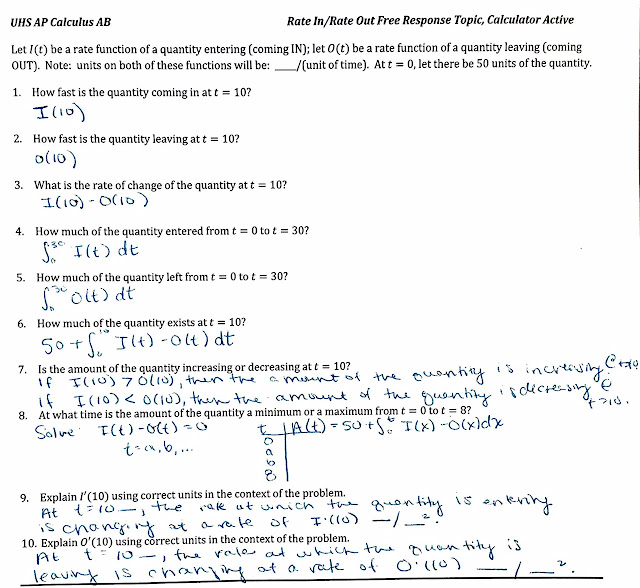 UHS AP Calculus AB Rate In/Rate Out Free Response Topic, Calculator Active
Let I(t) be a rate function of a quantity entering (coming IN); let O(t) be a rate function of a quantity leaving (coming
OUT). Note: units on both of these functions will be: ___/(unit of time). At t = 0, let there be 50 units of the quantity.
1. How fast is the quantity coming in at t = 10?
I(10)
2. How fast is the quantity leaving at t = 10?
O(10)
3. What is the rate of change of the quantity at t = 10?
I(10) - O(10)
4. How much of the quantity entered from t = 0 to t = 30?
∫₀³⁰ I(t) dt
5. How much of the quantity left from t = 0 to t = 30?
∫₀³⁰ O(t) dt
6. How much of the quantity exists at t = 10?
50 + ∫₀¹⁰ I(t) - O(t) dt
7. Is the amount of the quantity increasing or decreasing at t = 10?
If I(10) > O(10), then the amount of the quantity is increasing @ t=10
if I(10) < O(10), then the amount of the quantity is decreasing @
t=10.
8. At what time is the amount of the quantity a minimum or a maximum from t = 0 to t = 8?
Solve I(t) - O(t) = 0 t | A(t) = 50 + ∫₀ᵗ I(x) - O(x) dx
t = a, b, ... 0
a
b
8
9. Explain I'(10) using correct units in the context of the problem.
At t = 10 __, the rate at which the quantity is entering
is changing at a rate of I'(10) __/__².
10. Explain O'(10) using correct units in the context of the problem.
At t = 10 __, the rate at which the quantity is
leaving is changing at a rate of O'(10) __/__².